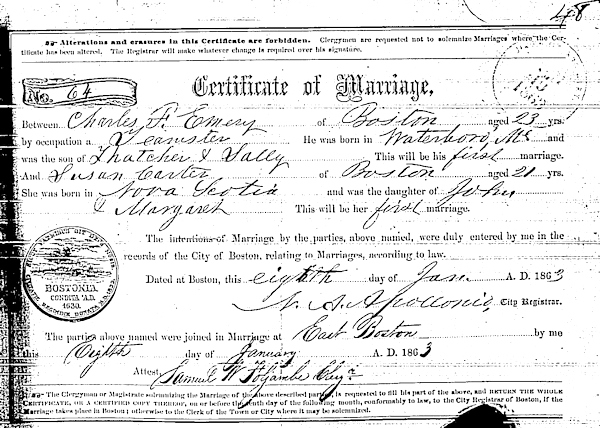 408
Alterations and erasures in this Certificate are forbidden. Clergymen are requested not to solemnize Marriages where the Cer-
tificate has been altered. The Registrar will make whatever change is required over his signature.
No. 64
Certificate of Marriage,
Between Charles F. Emery of Boston aged 23 yrs.
by occupation a Teamster He was born in Waterboro, Me and
was the son of Thatcher & Sally This will be his first marriage.
And Susan Carter of Boston aged 21 yrs.
She was born in Nova Scotia and was the daughter of John
& Margaret This will be her first marriage.
The intentions of Marriage by the parties, above named, were duly entered by me in the
records of the City of Boston, relating to Marriages, according to law.
Dated at Boston, this eighth day of Jan. A. D. 1863
N. A. Apollonio, City Registrar.
BOSTONIA.
CONDITA A.D.
1630.
The parties above named were joined in Marriage at East Boston by me
this Eighth day of January A. D. 1863
Attest, Samuel W.
The Clergyman or Magistrate solemnizing the Marriage of the above described parties, is requested to fill his part of the above, and RETURN THE WHOLE
CERTIFICATE, OR A CERTIFIED COPY THEREOF, on or before the tenth day of the following month, conformably to law, to the City Registrar of Boston, if the
Marriage takes place in Boston; otherwise to the Clerk of the Town or City where it may be solemnized.